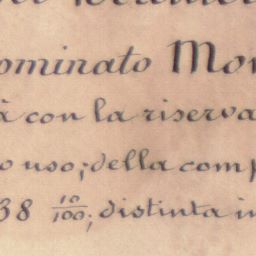 ominato Mon
à con la riserva
o uso; della comp
38 10/100; distinta in